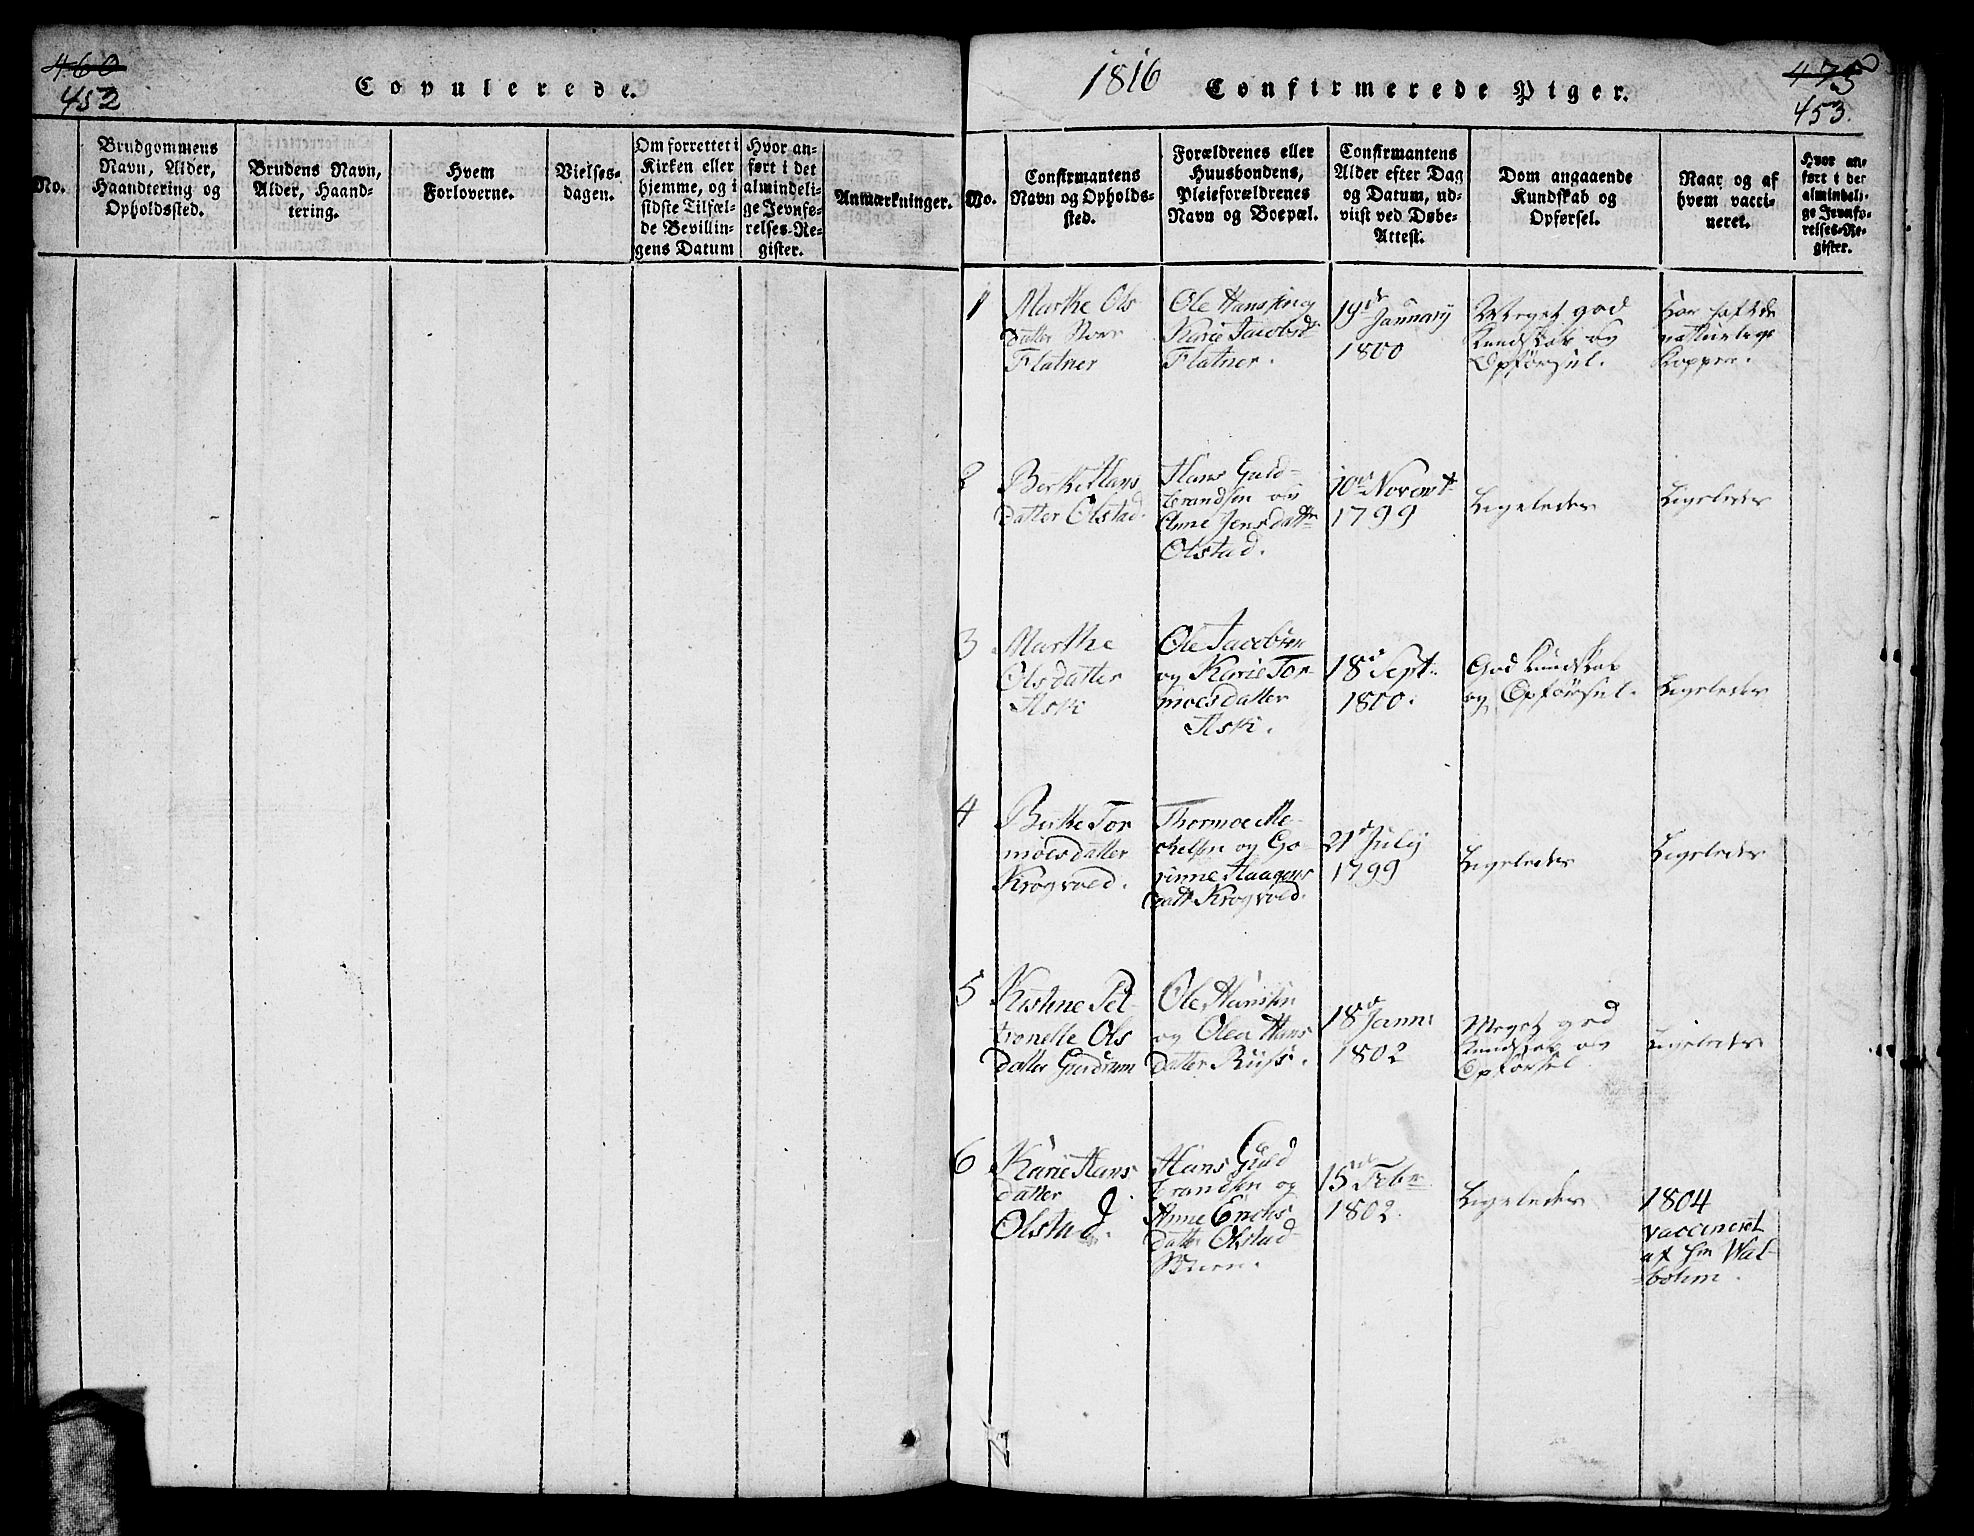 460
452
Copulerede.
No.
Brudgommens
Navn, Alder,
Haandtering og
Opholdssted.
Brudens Navn,
Alder, Haand-
tering.
Hvem
Forloverne.
Vielses-
dagen.
Om forrettet i
Kirken eller
hjemme, og i
sidste Tilfæl-
de Bevillin-
gens Datum
Hvor an-
ført i det
almindeli-
ge Jevnfø-
relses-Re-
gister.
Anmærkninger.
1816
Confirmerede Piger.
475
453.
No.
Confirmantens
Navn og Opholds-
sted.
Forældrenes eller
Huusbondens,
Pleieforældrenes
Navn og Boepæl.
Confirmantens
Alder efter Dag
og Datum, ud-
viist ved Døbe-
Attest.
Dom angaaende
Kundskab og
Opførsel.
Naar og af
hvem vacci-
neret.
Hvor an-
ført i det
almindeli-
ge Jevnfø-
relses-Re-
gister.
1
Marthe Ols
datter
Flatner
Ole Hanssen og
Karie Jacobsd
Flatner.
19de January
1800
Meget god
Kundskab og
Opførsel.
Har haft de
naturlige
Kopper.
2
Berthe Hans
datter Olstad.
Hans Guld-
brandsen og
Anne Jensdattr
Olstad.
10de Novembr
1799
Ligeledes
Ligeledes
3
Marthe
Olsdatter
Ask
Ole Jacobsen
og Karie Tor
moesdatter
Ask.
18de Sept.
1800.
God Kundskab
og Opførsel.
Ligeledes
4
Berthe Tor
moesdatter
Krogvold.
Thormoe Me-
chelsen og Go-
rinne Haagens
datt Krogvold.
21de July
1799
Ligeledes
Ligeledes
5
Kistine Pet
tronelle Ols
datter Gierdrum
Ole Hansen
og Olea Hans
datter Riis.
18de Jann:
1802
Meget god
Kundskab og
Opførsel
Ligeledes
6
Karie Hans
datter
Olstad.
Hans Guld
brandsen og
Anne Erichs
datter Olstad
15de Febr
1802.
Ligeledes
1804
vaccineret
af Hr Wal-
bohm.